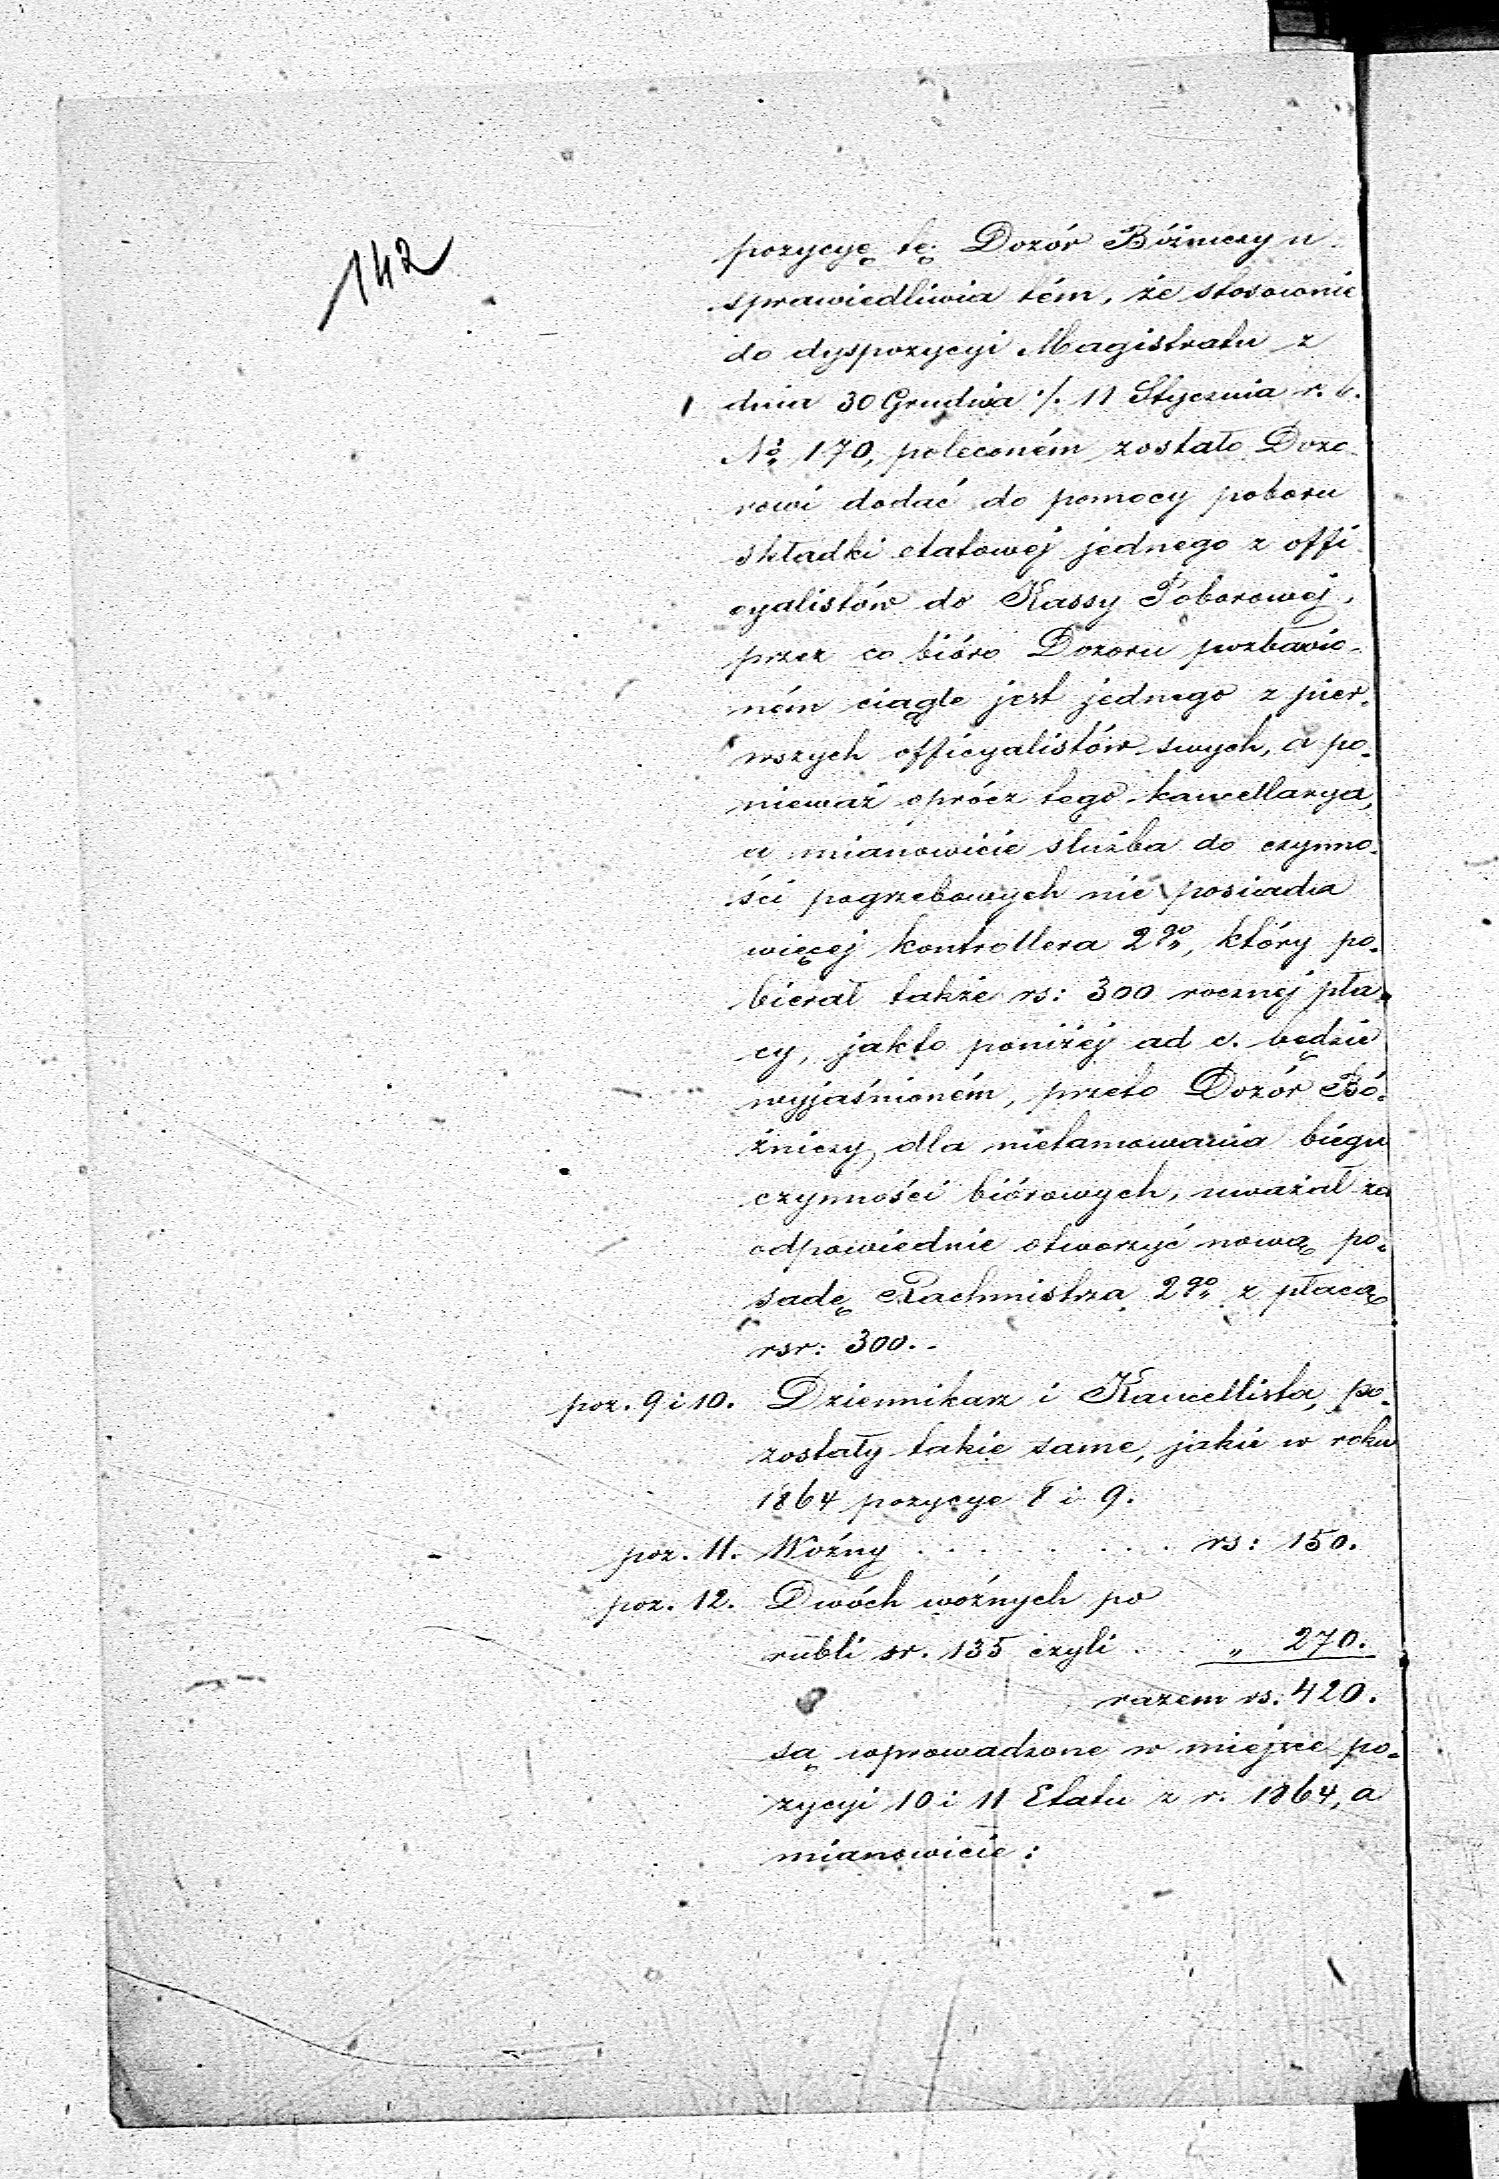 142
pozycyę tę Dozór Bóżniczy u-
sprawiedliwia tém, że stosownie
do dyspozycyi Magistratu z
dnia 30 Grudnia /. 11 Stycznia r. b.
No 170, poleconém zostało Dozo-
rowi dodać do pomocy poboru
składki etatowej jednego z offi-
cyalistów do Kassy Poborowej,
przez co bióro Dozoru pozbawio-
ném ciągle jest jednego z pier-
wszych officyalistów swych, a po-
nieważ oprócz tego kancellarya,
a mianowicie służba do czynno-
ści pogrzebowych nie posiada
więcej kontrollera 2go, który po-
bierał także rs: 300 rocznej pła-
cy, jak to poniżej ad c. będzie
wyjaśnioném, przeto Dozór Bó-
żniczy dla nietamowania biegu
czynności biórowych, uważał za
odpowiednie otworzyć nową po-
sadę Rachmistrza 2go z płacą
rsr: 300.-
poz. 9 i 10. Dziennikarz i Kancellista, po-
zostały takie same, jakie w roku
1864 pozycye 8 i 9.
poz. 11. Woźny . . . . . . . rs: 150.
poz. 12. Dwóch woźnych po
rubli sr. 135 czyli . . „ 270.
razem rs: 420.
są wprowadzone w miejsce po-
zycyi 10 i 11 Etatu z r. 1864, a
mianowicie: